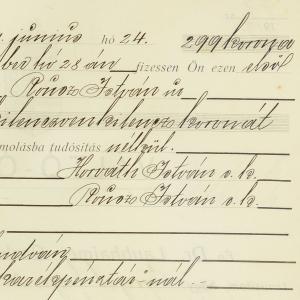 junius hó 24. 299 korona
hó 28 án fizessen Ön ezen első
István úr
kilenczvenkilencz koronát
molásba tudósítás nélkül.
Horváth István s. k.
István s. k.
takarékpénztár-nál